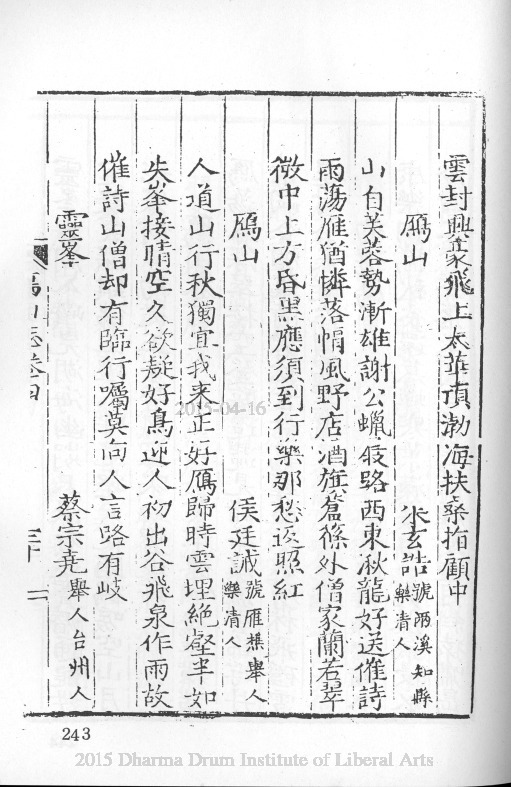 雲封興豪飛上太華頂渤海扶桑指顧中
鴈山 玄誥 號兩溪知縣樂清人
山白芙蓉勢漸雄謝公蠟屐路西東湫龍好送催詩
雨蕩雁猶憐落帽風野店酒旌篠外僧家蘭若翠
微中上方昏黑應須到行樂那愁返照紅
鴈山 侯廷誠 號雁舉人樂清人
人道山行秋獨宜我來正好鴈歸時雲埋絕壑半如
失峯接晴空久欲疑好鳥迎人初出谷飛泉作雨故
催詩山僧却有臨行囑莫向人言路有岐
靈峯 蔡宗堯 舉人台州人
山志卷四 三十二
2015-04-16
243
2015 Dharma Drum Institute of Liberal Arts